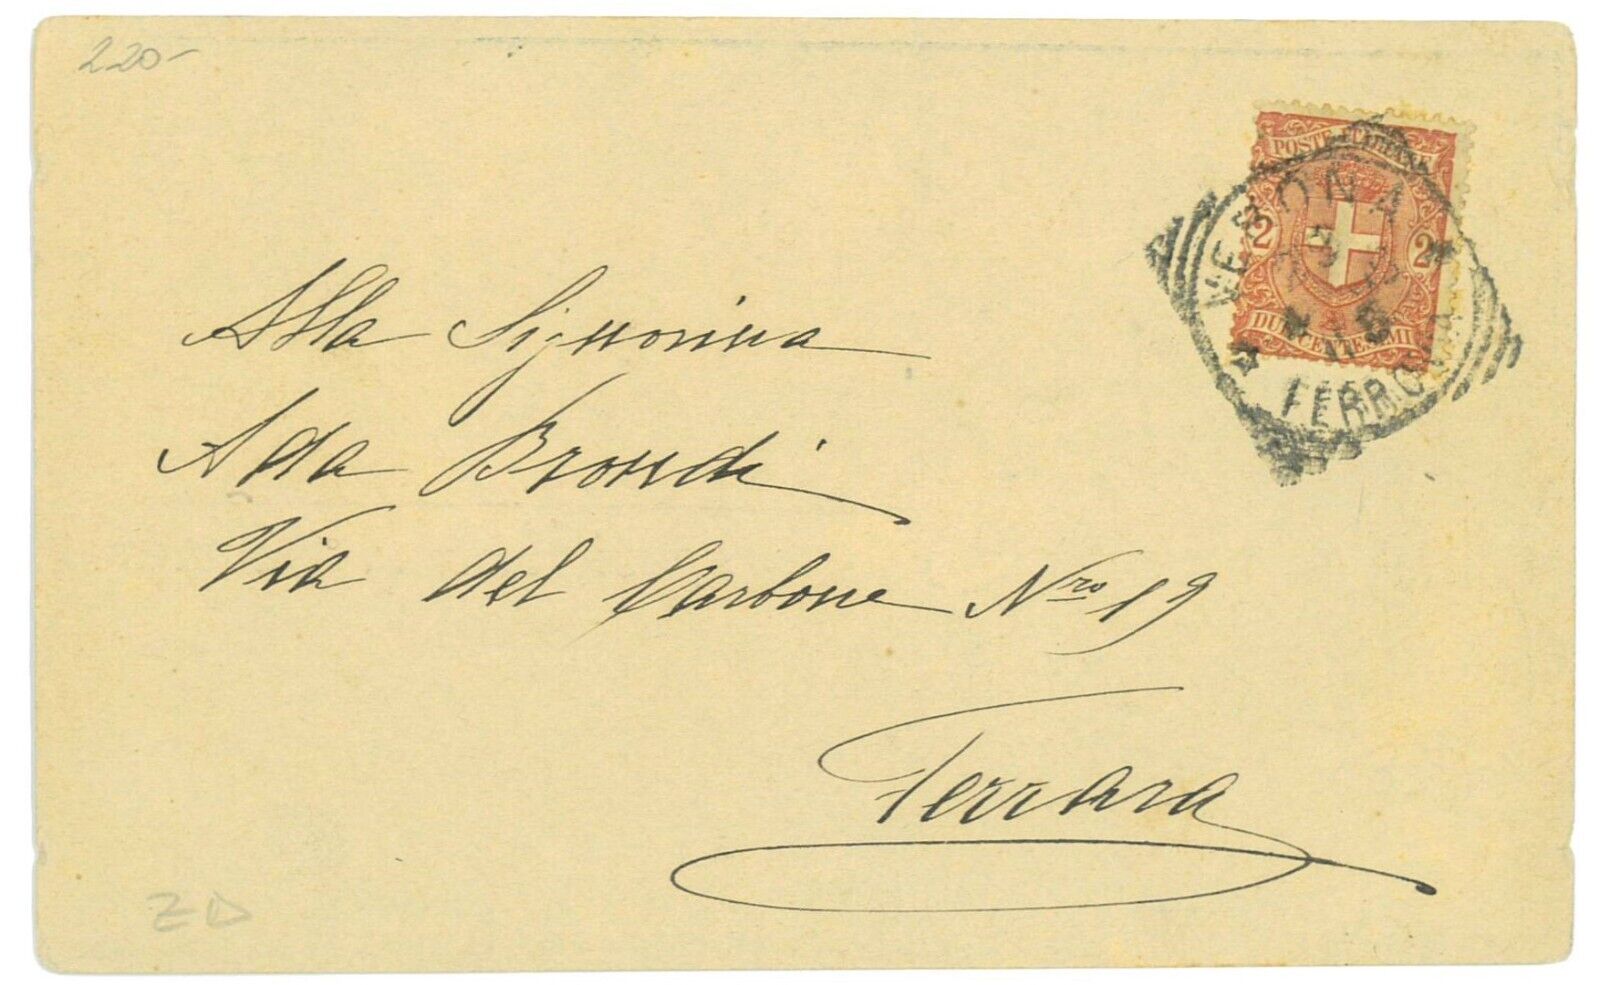 220-
POSTE ITALIANE
2 2
DUE CENTESIMI
VERONA
FERROVIA
Alla Signorina
Ada Brondi
Via del Carbone Nro 19
Ferrara